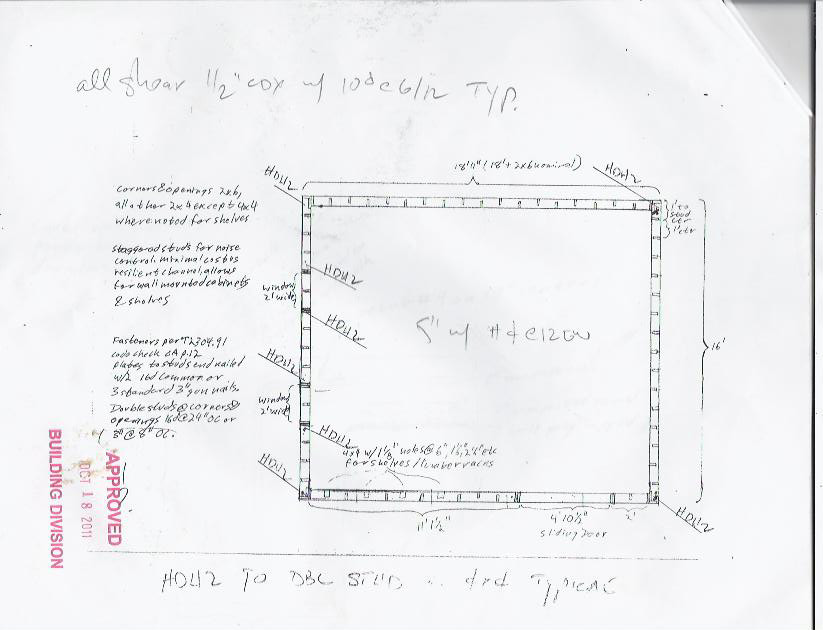 all shear 1/2" CDX w/ 10d @ 6/12 TYP.
18'11" (18' + 2x6 nominal)
HDU2
HDU2
corners & openings 2x6,
all other 2x4 except 4x4
where noted for shelves
1' to
stud
ctr
1' ctr
staggered studs for noise
control. minimal cost vs
resilient channel, allows
for wall mounted cabinets
& shelves
HDU2
window
2' wide
HDU2
5" w/ #4 @ 12 OW
16'
Fasteners per T2304.91
code check CA p.12
plates to studs end nailed
w/2 16d common or
3 standard 3" gun nails.
Double studs @ corners &
openings 16d @ 24" OC or
3" @ 8" OC.
HDU2
window
2' wide
HDU2
4x4 w/ 1 1/8" holes @ 6", etc
for shelves / lumber racks
HDU2
HDU2
11' 1 1/2"
4' 10 1/2"
sliding door
2'
APPROVED
OCT 18 2011
BUILDING DIVISION
HDU2 TO DBL STUD .. 4x4 TYPICAL